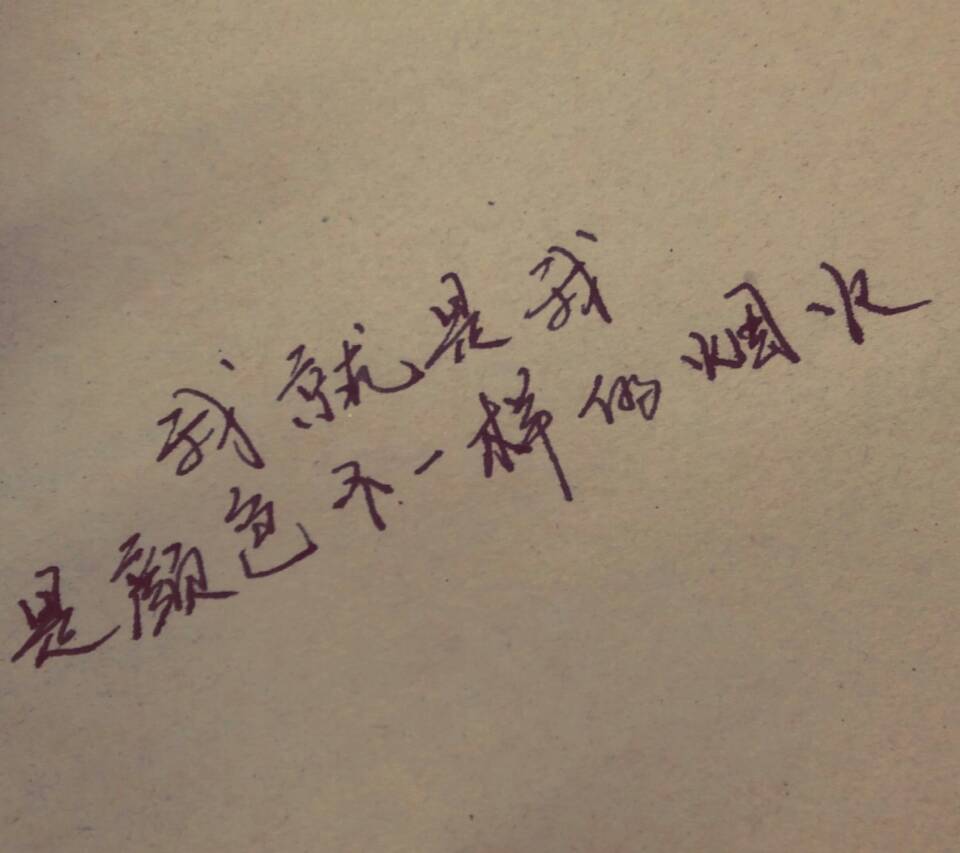 我就是我
是颜色不一样的烟火